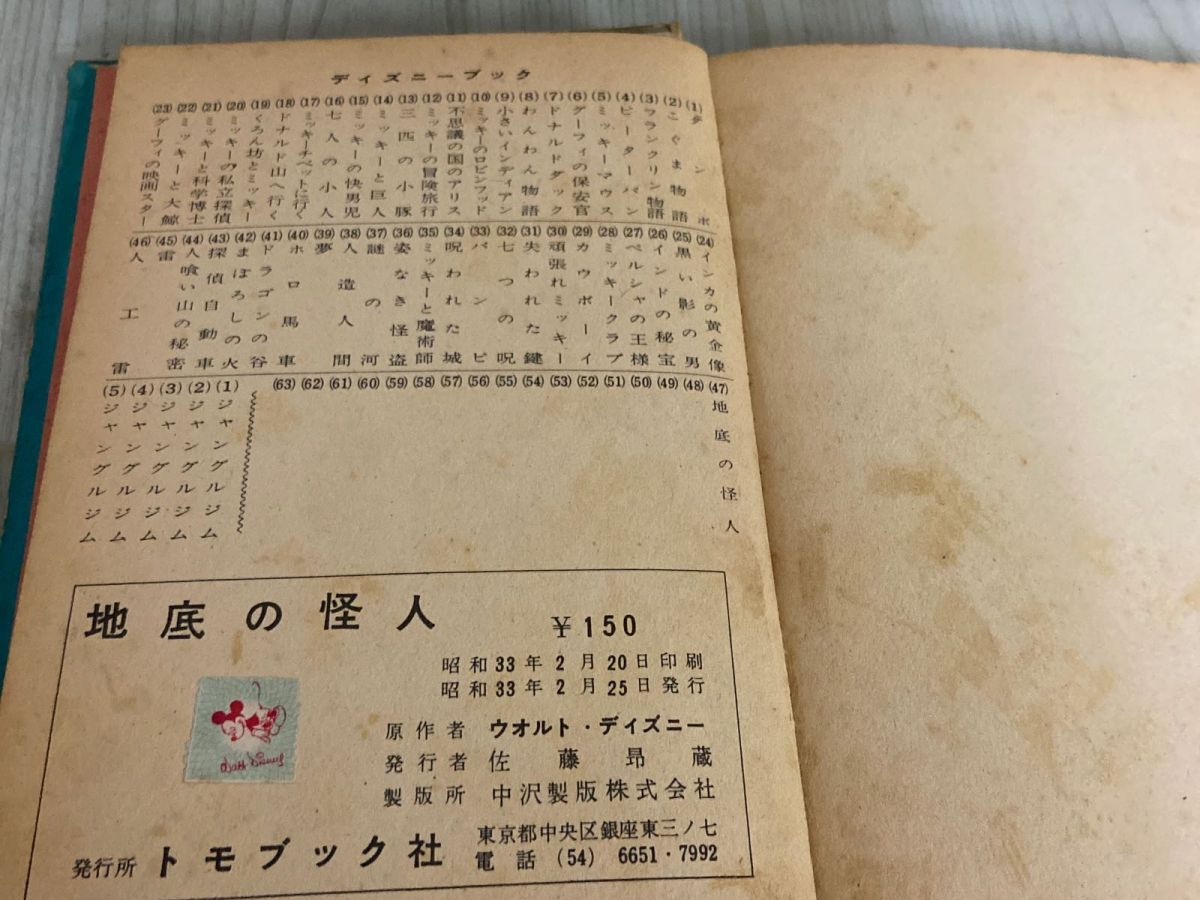 ディズニーブック
(1) ダンボ
(2) こぐま物語
(3) フランクリン物語
(4) ピーターパン
(5) ミッキーマウス
(6) グーフィの保安官
(7) ドナルドダック
(8) わんわん物語
(9) 小さいインディアン
(10) ミッキーのロビンフッド
(11) 不思議の国のアリス
(12) ミッキーの冒険旅行
(13) 三匹の小豚
(14) ミッキーと巨人
(15) ミッキーの快男児
(16) 七人の小人
(17) ミッキーチベットに行く
(18) ドナルド山へ行く
(19) くろん坊とミッキー
(20) ミッキーの私立探偵
(21) ミッキーと科学博士
(22) ミッキーと大鯨
(23) グーフィの映画スター
(24) インカの黄金像
(25) 黒い影の男
(26) インドの秘宝
(27) ペルシャの王様
(28) ミッキークラブ
(29) カウボーイ
(30) 頑張れミッキー
(31) 失われた鍵
(32) 七つの呪
(33) バンビ
(34) 呪われた城
(35) ミッキーと魔術師
(36) 姿なき怪盗
(37) 謎の河
(38) 人造人間
(39) 夢
(40) ホロ馬車
(41) ドラゴンの谷
(42) まぼろしの火
(43) 探偵自動車
(44) 人喰い山の秘密
(45) 雷
(46) 人工雷
(47) 地底の怪人
(48)
(49)
(50)
(51)
(52)
(53)
(54)
(55)
(56)
(57)
(58)
(59)
(60)
(61)
(62)
(63)
(1) ジャングルジム
(2) ジャングルジム
(3) ジャングルジム
(4) ジャングルジム
(5) ジャングルジム
地底の怪人
¥150
昭和33年2月20日印刷
昭和33年2月25日発行
Walt Disney
原作者 ウオルト・ディズニー
発行者 佐藤昂蔵
製版所 中沢製版株式会社
発行所 トモブック社
東京都中央区銀座東三ノ七
電話 (54) 6651・7992